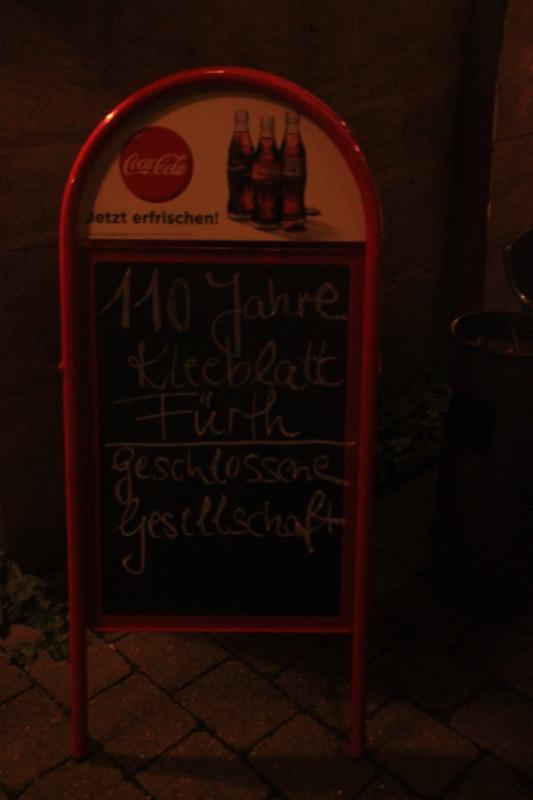 Coca-Cola
Jetzt erfrischen!
110 Jahre
Kleeblatt
Fürth
geschlossene
Gesellschaft